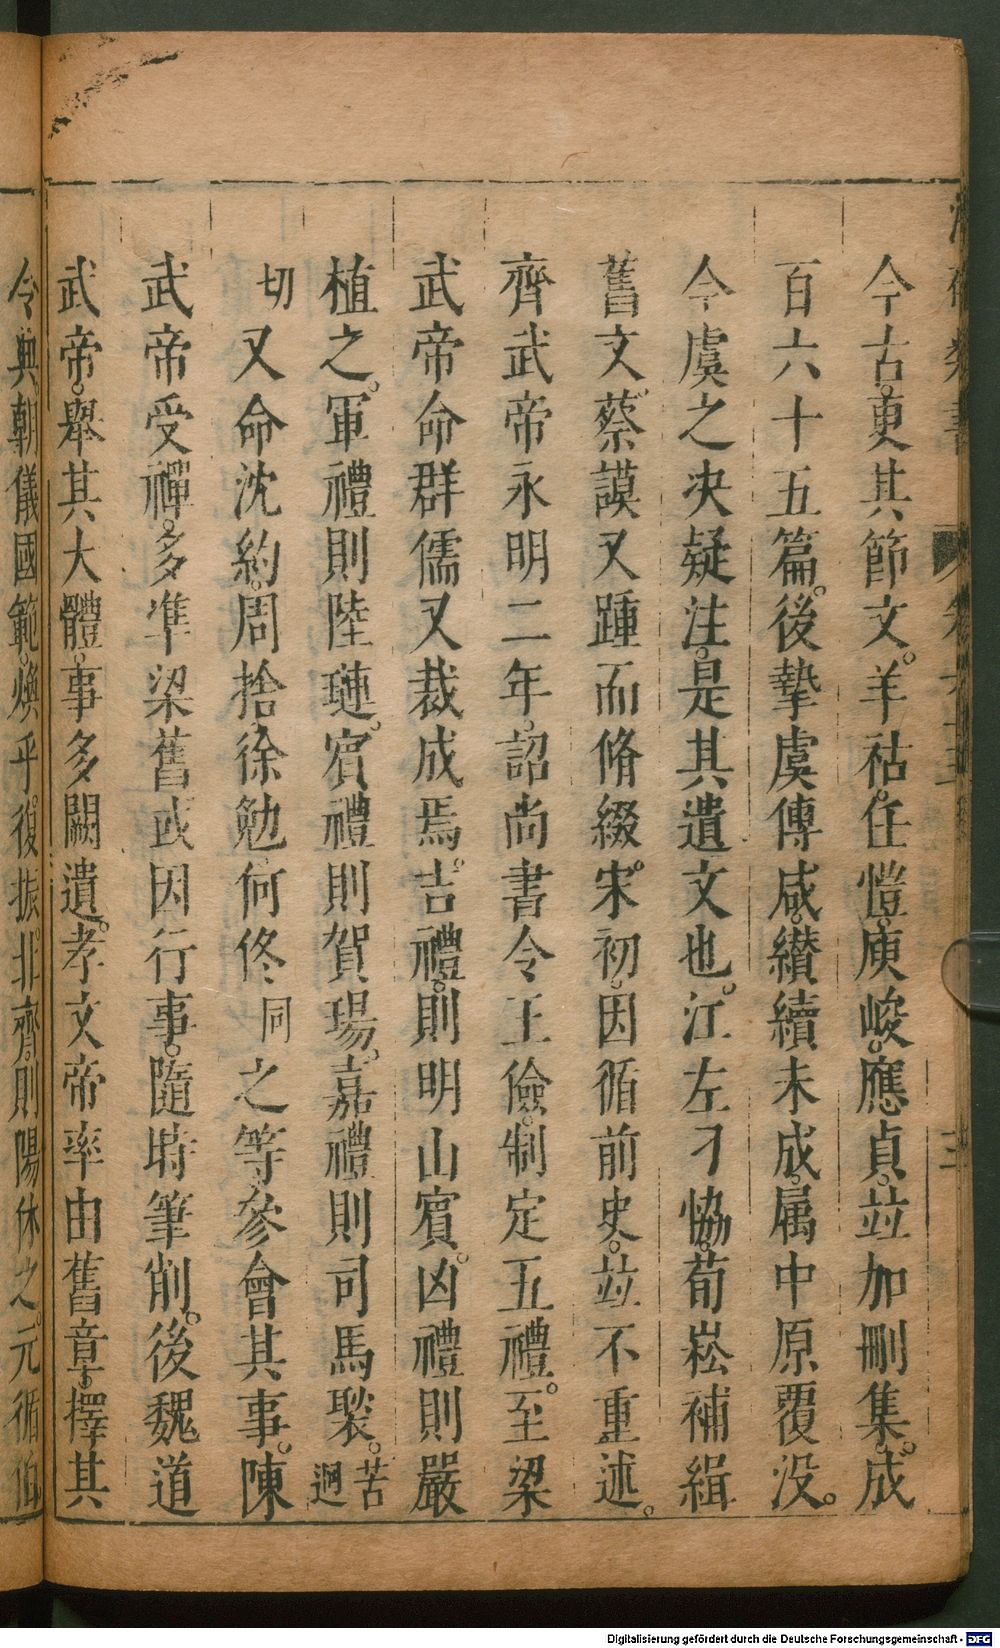 今古。更其節文。羊祜。任愷。庾峻。應貞。並加刪集。成
百六十五篇。後摯虞傅咸。纘續未成。属中原覆没。
今虞之决疑注。是其遺文也。江左刁恊。荀崧補緝
舊文。蔡謨又踵而脩綴。宋初。因循前史。並不重述。
齊武帝永明二年。詔尚書令王儉。制定五禮。至梁
武帝命群儒又裁成焉。吉禮。則明山賓。凶禮則嚴
植之。軍禮則陸璉。賓禮則賀瑒。嘉禮則司馬褧。苦迥
切又命沈約。周捨徐勉何佟同之等。參會其事。陳
武帝受禪。多準梁舊或因行事。隨時筆削。後魏道
武帝。舉其大體。事多闕遺。孝文帝率由舊章。擇其
令典朝儀國範。煥乎。復振。北齊。則陽休之。元循伯
三
Digitalisierung gefördert durch die Deutsche Forschungsgemeinschaft - DFG